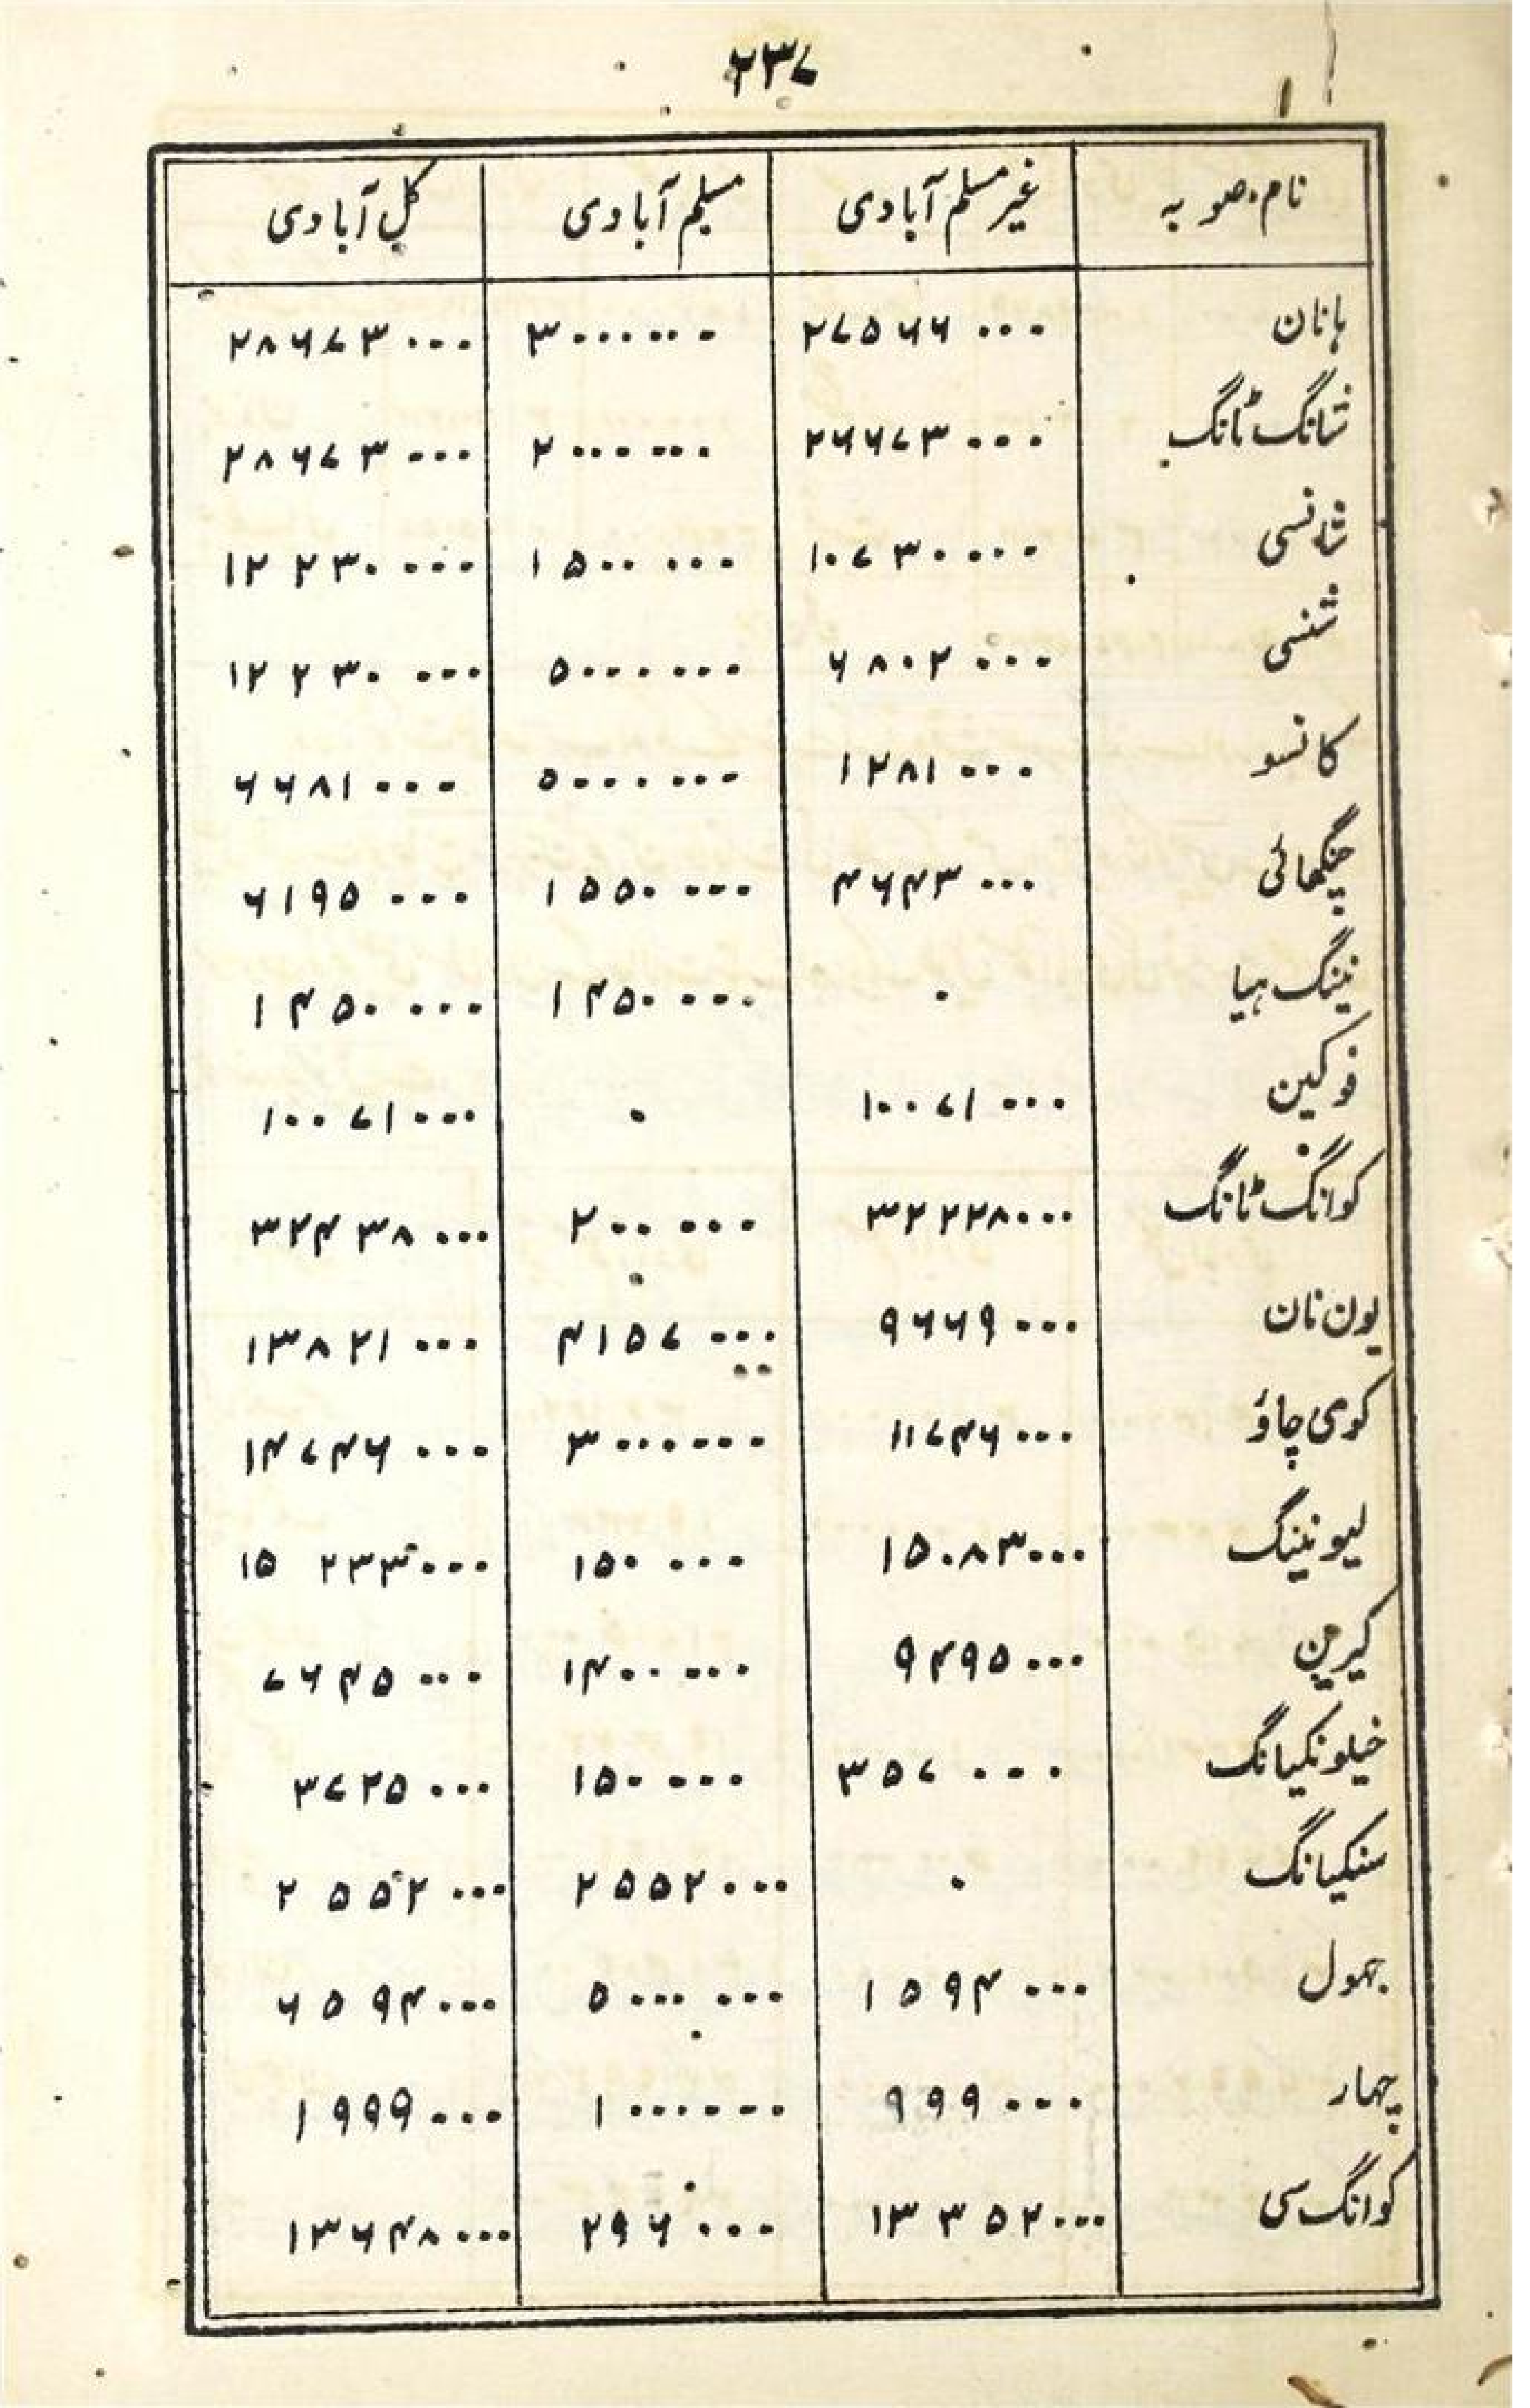 ۲۳۷
نام صوبہ غیر مسلم آبادی مسلم آبادی کل آبادی
ہانان ۲۷۵۶۶۰۰۰ ۳۰۰۰۰۰۰ ۲۸۶۷۳۰۰۰
شانگ ٹانگ ۲۶۶۷۳۰۰۰ ۲۰۰۰۰۰۰ ۲۸۶۷۳۰۰۰
شانسی ۱۰۷۳۰۰۰۰ ۱۵۰۰۰۰۰ ۱۲۲۳۰۰۰۰
شنسی ۶۸۰۲۰۰۰ ۵۰۰۰۰۰۰ ۱۲۲۳۰۰۰۰
کانسو ۱۲۸۱۰۰۰ ۵۰۰۰۰۰۰ ۶۶۸۱۰۰۰
چنگھائی ۴۶۴۳۰۰۰ ۱۵۵۰۰۰۰ ۶۱۹۵۰۰۰
ننگ ہیا ۰ ۱۴۵۰۰۰۰ ۱۴۵۰۰۰۰
فوکین ۱۰۰۷۱۰۰۰ ۰ ۱۰۰۷۱۰۰۰
کوانگ ٹانگ ۳۲۲۲۸۰۰۰ ۲۰۰۰۰۰ ۳۲۴۳۸۰۰۰
یون نان ۹۶۶۹۰۰۰ ۴۱۵۷۰۰۰ ۱۳۸۲۱۰۰۰
کوی چاؤ ۱۱۷۴۶۰۰۰ ۳۰۰۰۰۰۰ ۱۴۷۴۶۰۰۰
لیوننگ ۱۵۰۸۳۰۰۰ ۱۵۰۰۰۰ ۱۵۲۳۳۰۰۰
کیرین ۹۴۹۵۰۰۰ ۱۴۰۰۰۰۰ ۷۶۴۵۰۰۰
خیلونکیانگ ۳۵۷۰۰۰ ۱۵۰۰۰۰ ۳۷۲۵۰۰۰
سنکیانگ ۰ ۲۵۵۲۰۰۰ ۲۵۵۲۰۰۰
جہول ۱۵۹۴۰۰۰ ۵۰۰۰۰۰۰ ۶۵۹۴۰۰۰
چہار ۹۹۹۰۰۰ ۱۰۰۰۰۰۰ ۱۹۹۹۰۰۰
کوانگ سی ۱۳۳۵۲۰۰۰ ۲۹۶۰۰۰ ۱۳۶۴۸۰۰۰